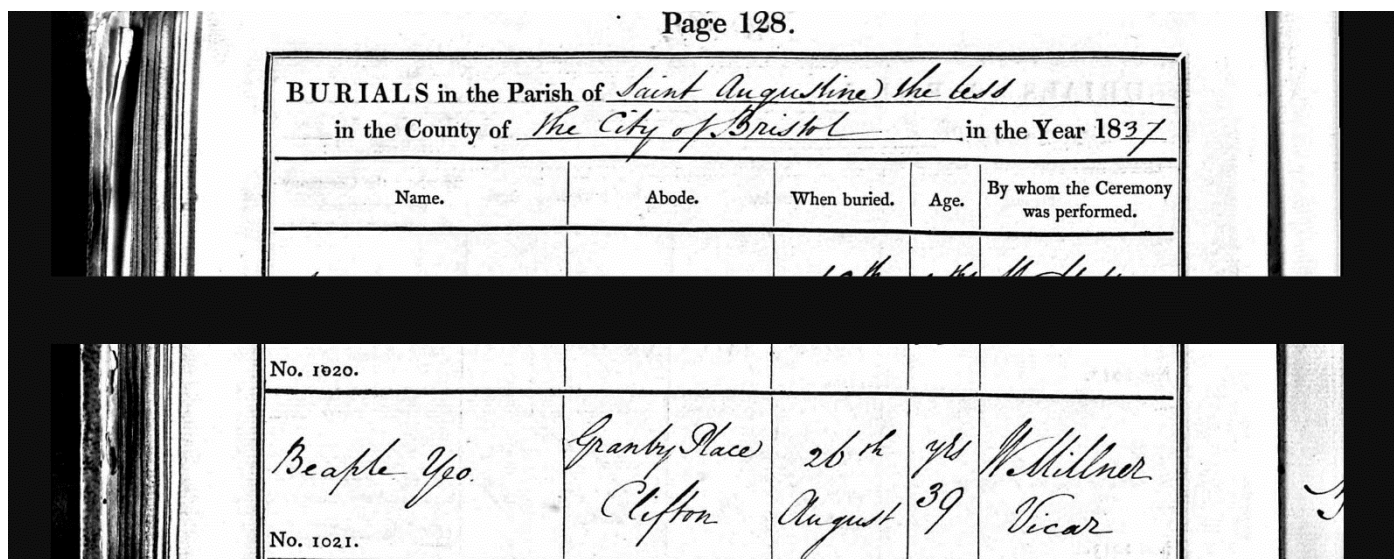 Page 128.
BURIALS in the Parish of Saint Augustine the less
in the County of the City of Bristol in the Year 1837
Name. Abode. When buried. Age. By whom the Ceremony was performed.
No. 1020.
Beaple Yeo. Granby Place 26th yrs W Millner
Clifton August 39 Vicar
No. 1021.